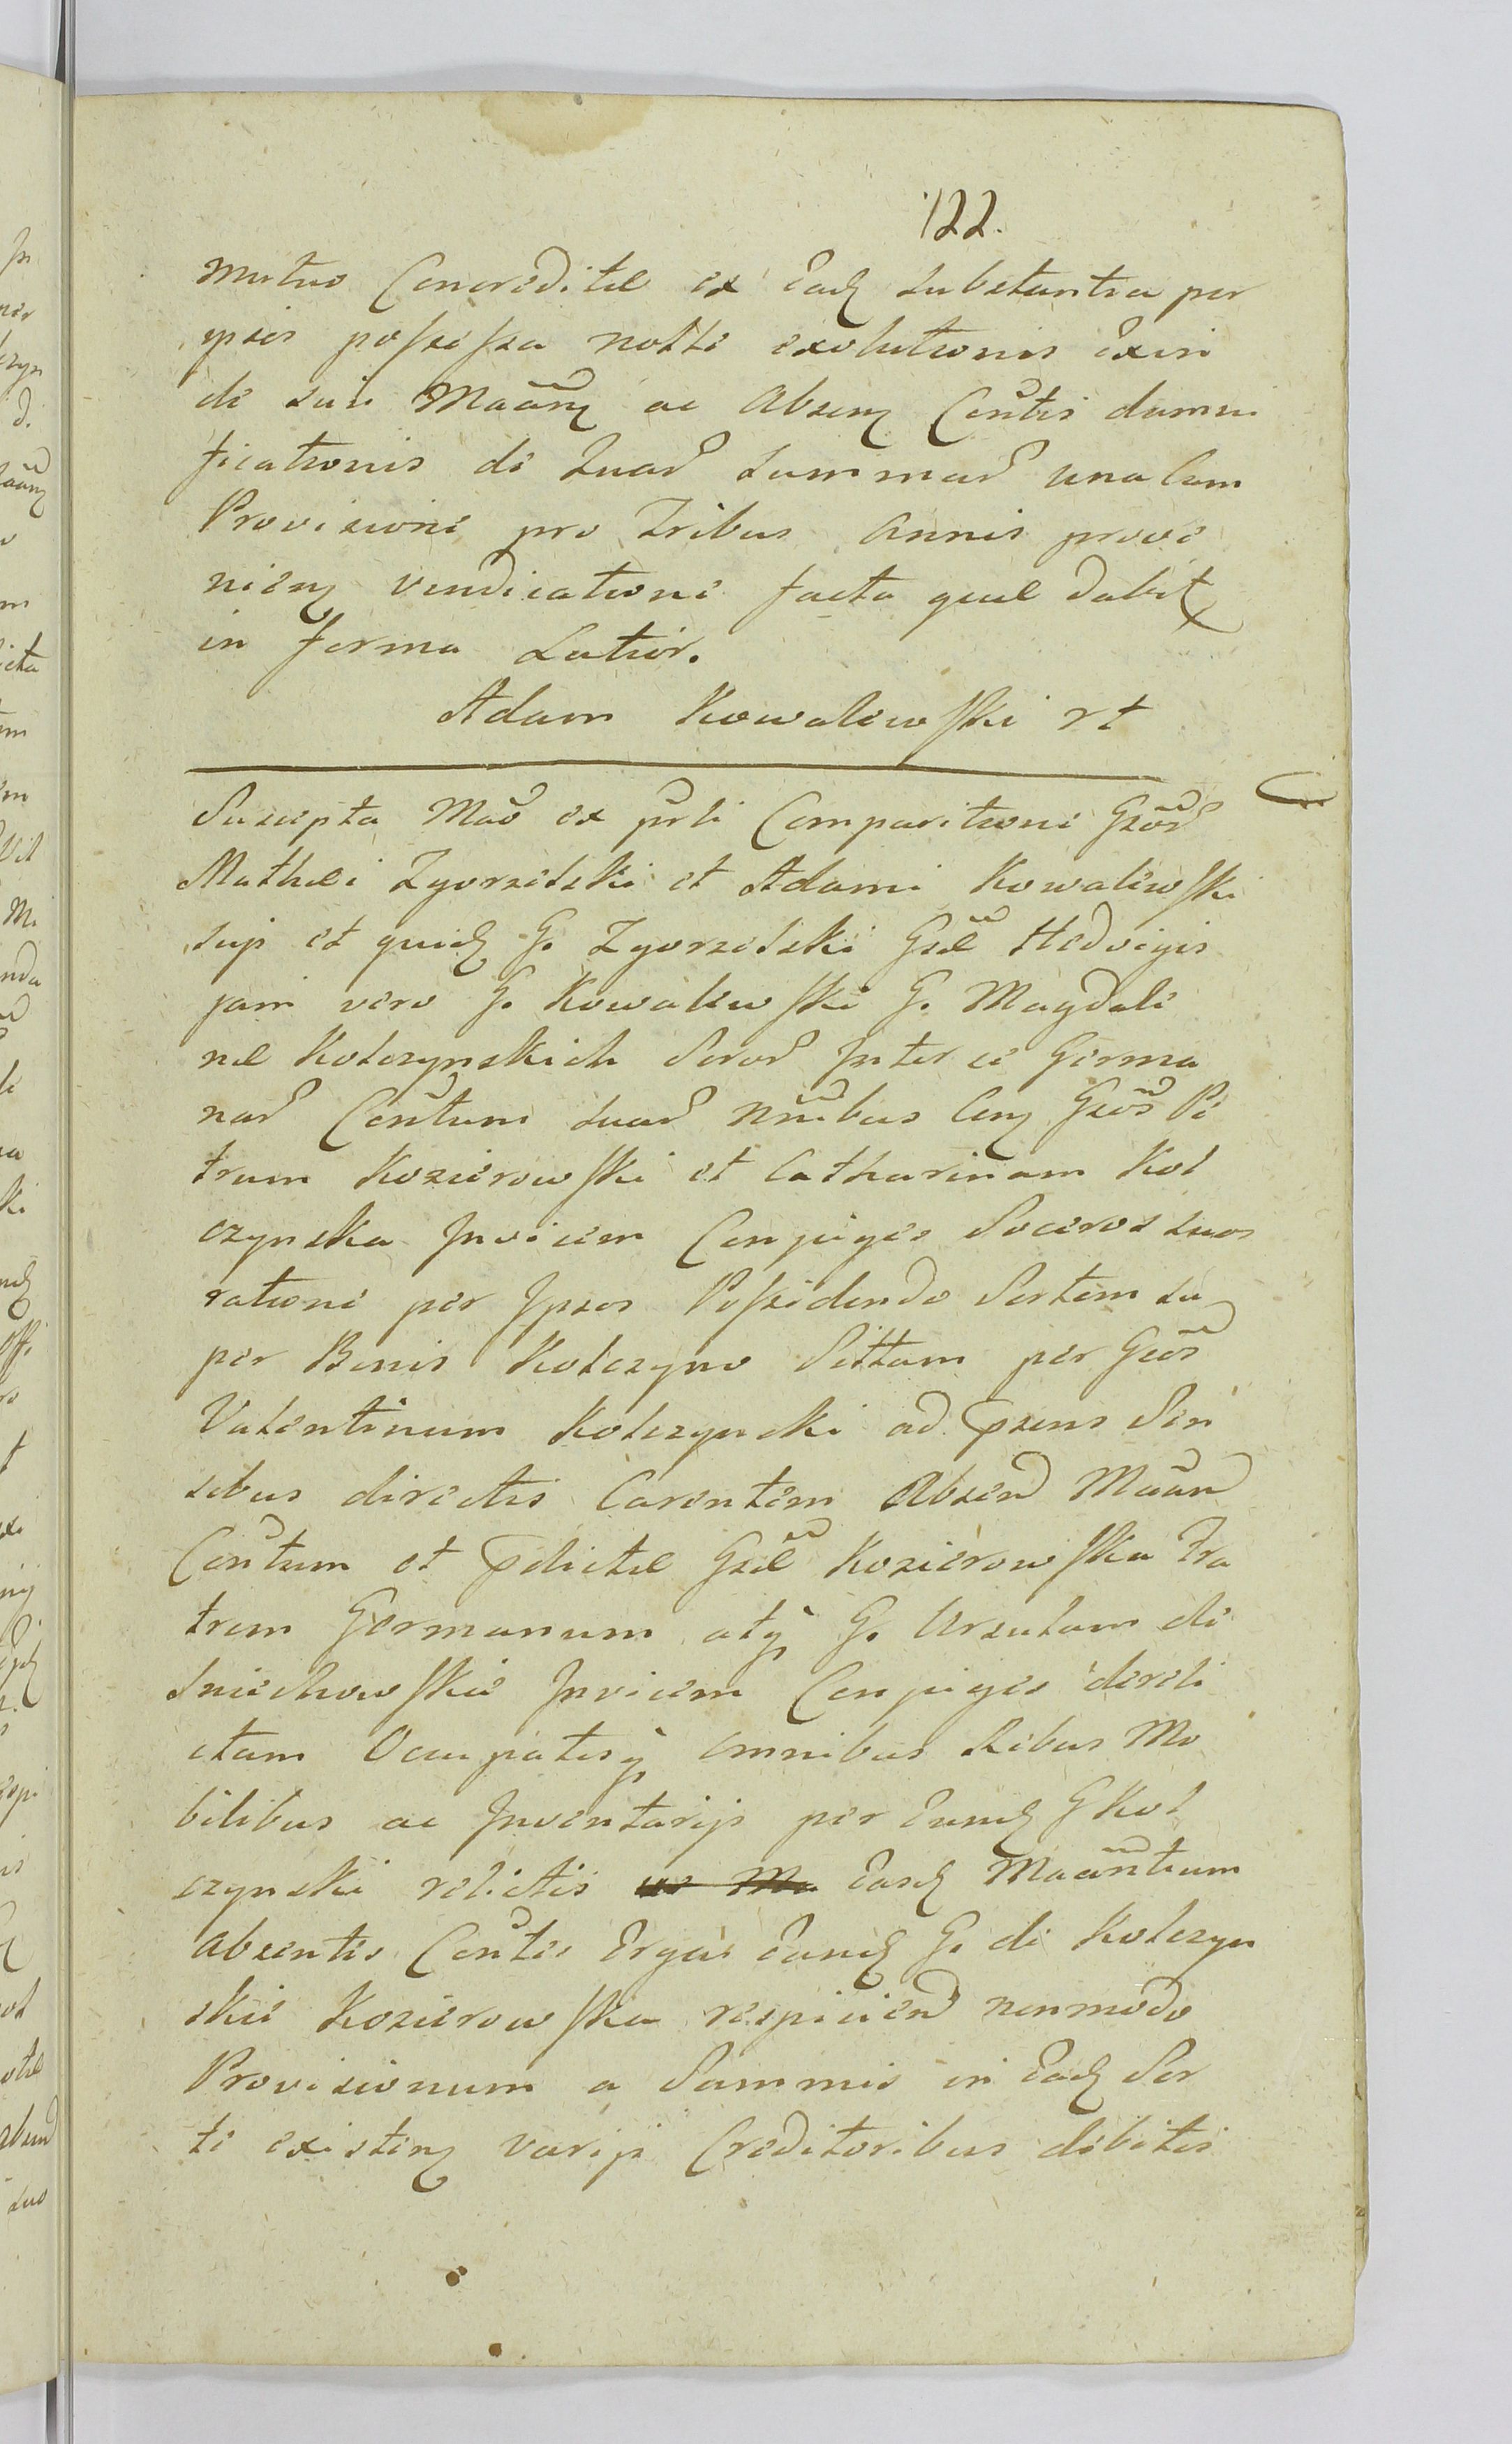 122.
mutuo Concreditæ ex Eadq substantia per
ipsos possessa nolle exolutionis Exin
de suis Maãnq ac Absenq Cõntis damni
ficationis de suar summar una Cum
Provisione pro Tribus Annis prove
nienq vendicatione facta quæ dabit
in forma Latior.
Adam Kowalewski rt
Suscepta Mão ex prli Comparitione Gsor
Mathæi Zgorzelski et Adami Kowalewski
sup et quidq G. Zgorzelski Gsæ Hedvigis
jam vero G. Kowalewski G. Magdale
næ Kolczynskich Soror Inter se Germa
nar Cõntum suar nnibus Cenq Gsos Pe
trum Kozierowski et Catharinam Kol
czynska Invicem Conjuges Soceros suos
ratione per Ipsos Possidendo Sortem su
per Bonis Kolczyno Sittam per Gsos
Valentinum Kolczynski ad prsens Sen
sibus directis Carentem Absen Maãn
Cõntum et pdictæ Gsæ Kozierowska Fra
trem Germanum atq G. Ursulam de
Sniechowskie Invicem Conjuges dereli
ctam Occupatisq omnibus Rebus Mo
bilibus ac Inventarijs per Eundq G Kol
czynski relictis Easdq Maãntium
absentis Cõntis Ergas Eandq G. de Kolczyn
skie Kozierowska respicien nonmodo
Provisionum a Summis in Eadq Sor
te existenq varijs Creditoribus debitis